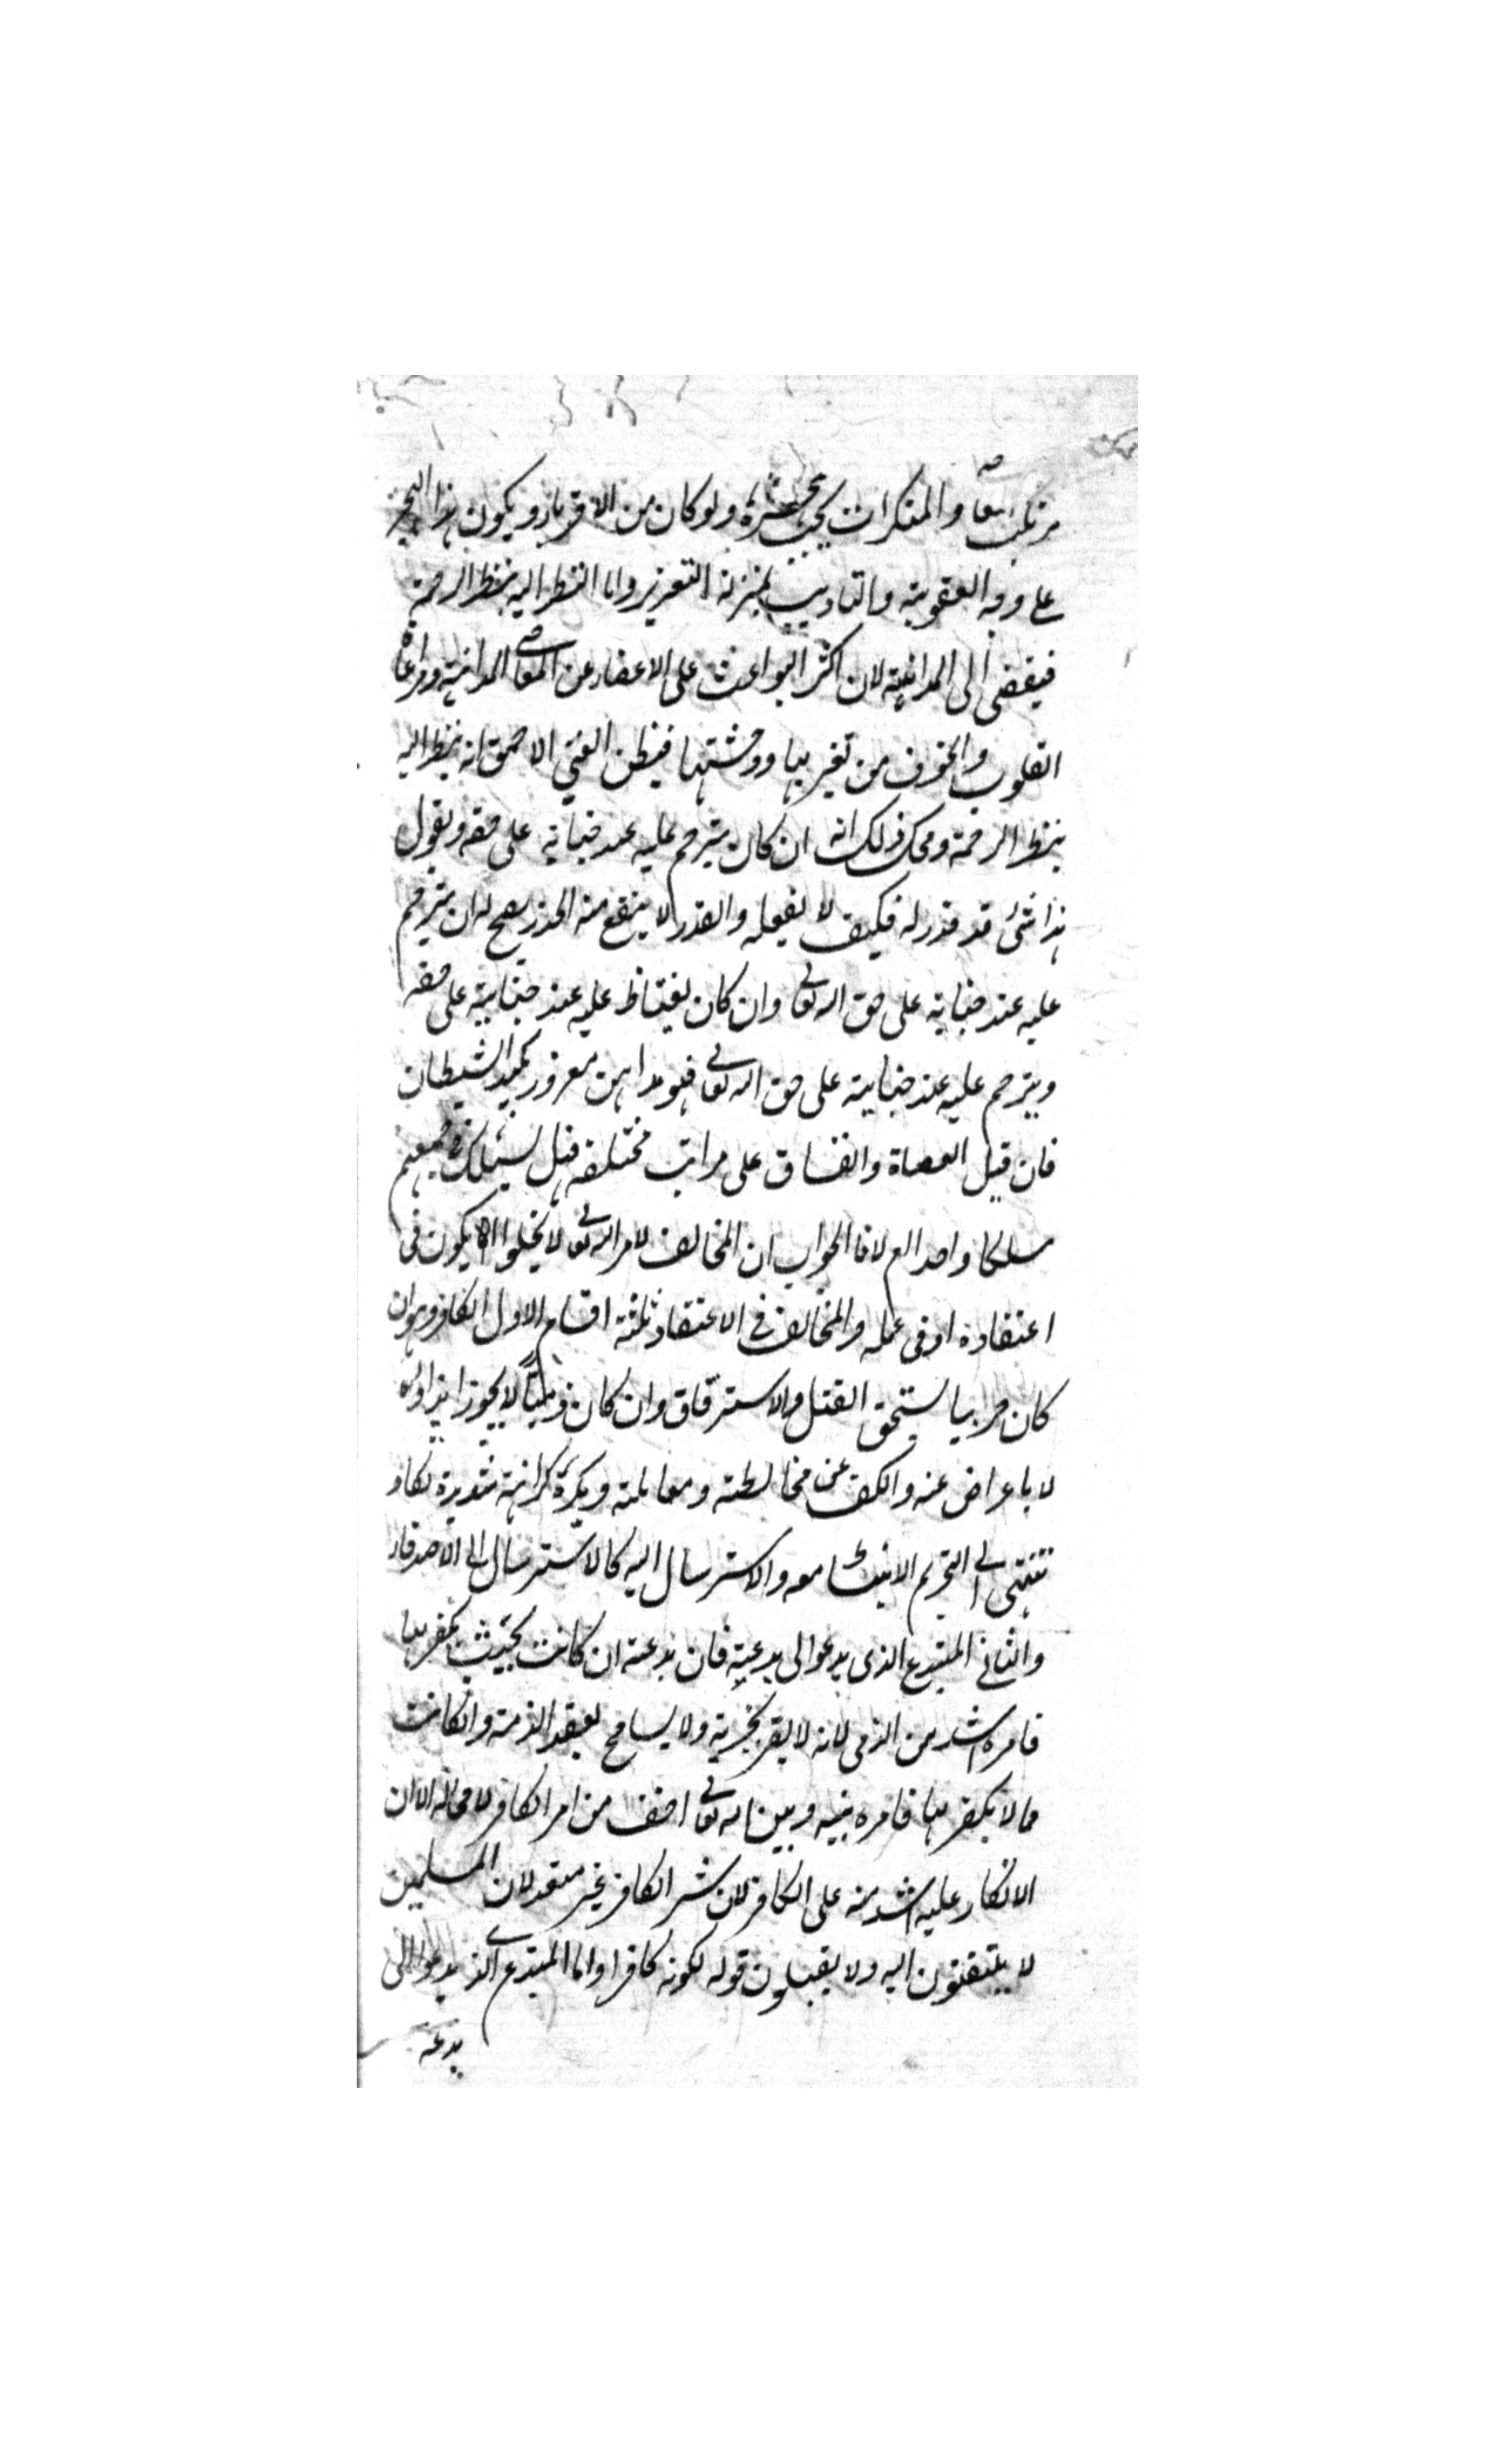 مرتكب المعاصي والمنكرات يجب هجره ولو كان من الاقرباء ويكون هذا الهجر
على وجه العقوبة والتاديب بمنزلة التعزير واما النظر اليه بنظر الرحمة
فيفضي الى المداهنة لان اكثر البواعث على الاغضاء عن المعاصي المداهنة ومراعاة
القلوب والخوف من تغيرها ووحشتها فيظن الغبي الاحمق انه ينظر اليه
بنظر الرحمة ومحك ذلك انه ان كان يترحم عليه عند جنايته على حقه ويقول
هذا شئ قد قدر له فكيف لا يفعله والقدر لا ينفع منه الحذر يصح له ان يترحم
عليه عند جنايته على حق الله تعالى وان كان يغتاظ عليه عند جنايته على حقه
ويترحم عليه عند جنايته على حق الله تعالى فهو مداهن مغرور بكيد الشيطان
فان قيل العصاة والفساق على مراتب مختلفة فهل يسلك في جميعهم
مسلكا واحدا ام لا فالجواب ان المخالف لامر الله تعالى لا يخلوا اما ان يكون في
اعتقاده او في عمله والمخالف في الاعتقاد ثلثة اقسام الاول الكافر وهو ان
كان حربيا يستحق القتل والاسترقاق وان كان ذميا لا يجوز ايذاؤه
لا باعراض عنه والكف عن مخالطته ومعاملته ويكره كراهة شديدة تكاد
تنتهي الى التحريم الانبساط معه والاسترسال اليه كالاسترسال الى الاصدقاء
والثاني المبتدع الذي يدعوا الى بدعته فان بدعته ان كانت بحيث يكفر بها
فامره اشد من الذمي لانه لا يقر بجزية ولا يسامح بعقد الذمة وان كانت
مما لا يكفر بها فامره بينه وبين الله تعالى اخف من امر الكافر لا محالة الا ان
الانكار عليه اشد منه على الكافر لان شر الكافر غير متعد لان المسلمين
لا يلتفتون اليه ولا يقبلون قوله لكونه كافرا واما المبتدع الذي يدعوا الى
بدعة